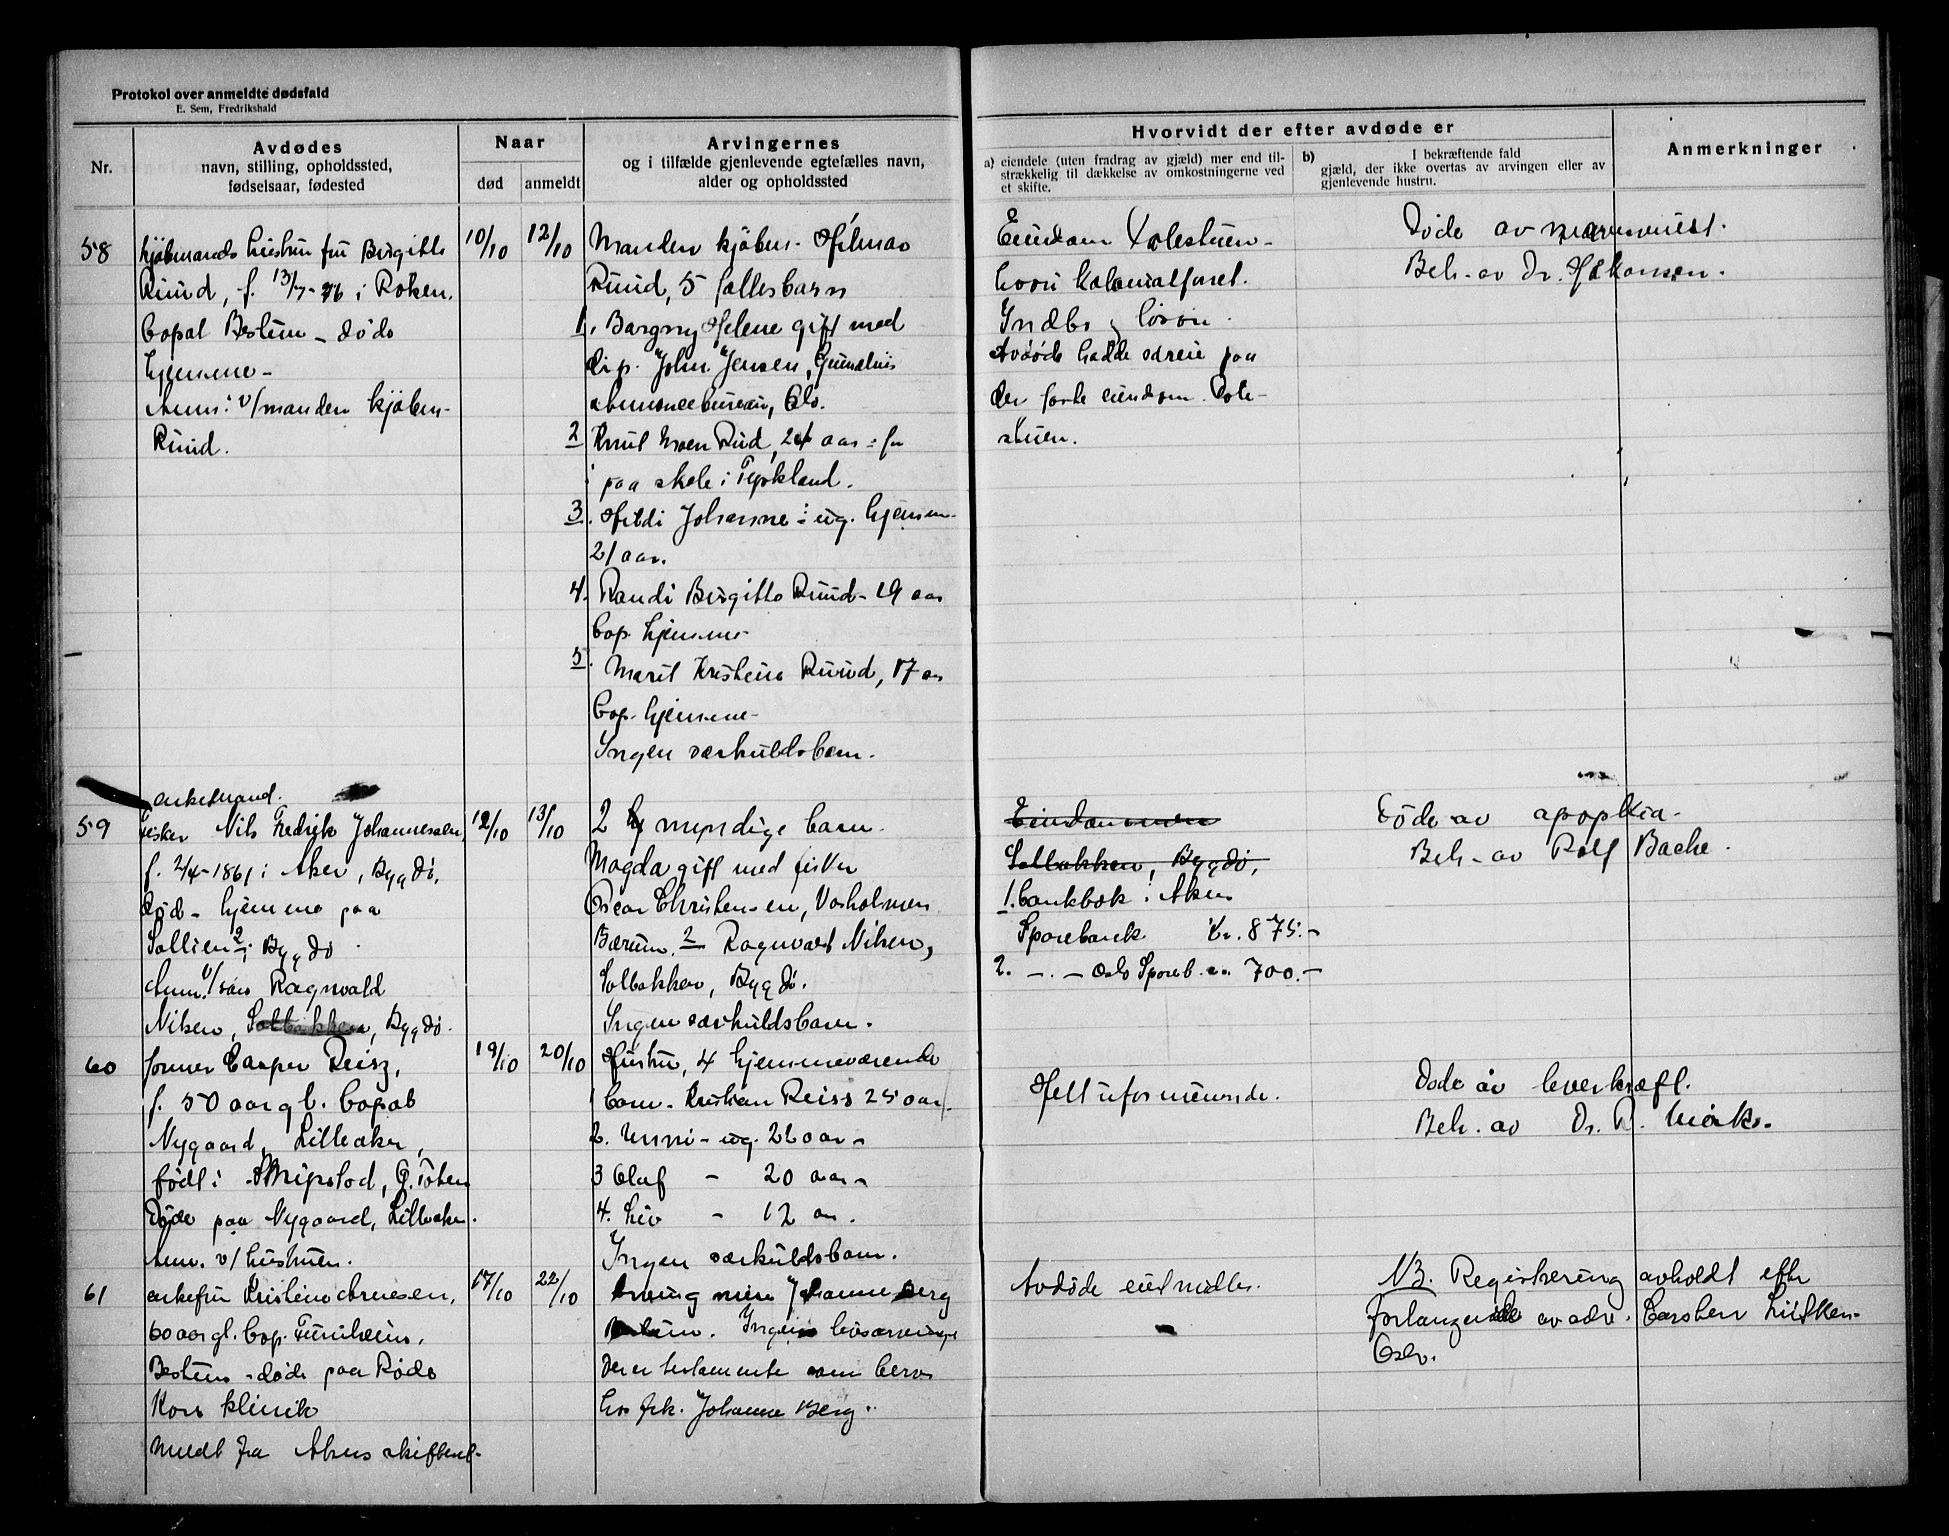 Protokol over anmeldte dødsfald
E. Sem, Fredrikshald
Nr.
Avdødes
navn, stilling, opholdssted,
fødselsaar, fødested
Naar
død
anmeldt
Arvingernes
og i tilfælde gjenlevende egtefælles navn,
alder og opholdssted
Hvorvidt der efter avdøde er
a) eiendele (uten fradrag av gjæld) mer end til-
strækkelig til dækkelse av omkostningerne ved
et skifte.
b) I bekræftende fald
gjæld, der ikke overtas av arvingen eller av
gjenlevende hustru.
Anmerkninger
58
kjøbmands hustru fru Birgitte
Ruud, f. 13/7-76 i Røken.
bopat Bestum - døde
hjemme -
Anm: v/manden kjøbm-
Ruud.
10/10
12/10
Manden kjøbm. Hilmar
Ruud, 5 fællesbarn
1. Borgny Helene gift med
disp. John Jensen, Gumælius
annoncebureau, Oslo.
2 Knut Moen Rud, 24 aar
paa skole i Tyskland.
3. Hildi Johanne ug. hjemme
21 aar.
4. Randi Birgitte Ruud - 19 aar
bop. hjemme
5. Marit Kristine Ruud, 17 aar
bop. hjemme -
Ingen særkuldsbarn.
Eiendom
hvori kolonialforet.
Indbo og løsøre.
Avdøde hadde særeie paa
den faste eiendom
stuen.
Døde av
Beh. av Dr. Håkonsen.
59
enkemand.
Fisker Nils Fredrik Johannessen,
f. 2/4-1861 i Aker, Bygdø,
død - hjemme paa
Sollien 2, Bygdø
Anm. v/søn Ragnvald
Nilsen, Solbakken, Bygdø.
12/10
13/10
2 myndige barn.
Magda gift med fisker
Oscar Christensen, Vasholmen
Bærum. 2 Ragnvald Nilsen,
Solbakken, Bygdø.
Ingen særkuldsbarn.
Eiendommen
Solbakken, Bygdø,
1. bankbok i Akers
Sparebank Kr. 875.-
2. - - - Oslo Spareb. " 700.-
Døde av apoplexia.
Beh. av Rolf Bache.
60
former Casper Reisz,
f. 50 aar gl. bopat
Nygaard, Lilleaker,
født i Ø. Toten
Døde paa Nygaard, Lilleaker.
Anm. v/ hustruen.
19/10
20/10
Hustru, 4 hjemmeværende
1 barn. Kristian Reiss 25 aar.
2. Unni - ug. 22 aar -
3 Olaf - 20 aar -
4. Liv - 12 aar.
Ingen særkuldsbarn.
Helt uformuende.
Døde av leverkræft.
Beh. av Dr. R. Mørk.
61
enkefru Kristine Arnesen,
60 aar gl. bop. Furuheim,
Bestum - døde paa Røde
Kors klinik
meldt fra Akers skifteret -
17/10
22/10
Arving Johanne Berg
Bestum. Ingen livsarvinger
Der er testamente som beror
hos frk. Johanne Berg.
Avdøde eiet midler.
NB. Registrering avholdt efter
forlangende av adv. Carsten Lütken -
Oslo.